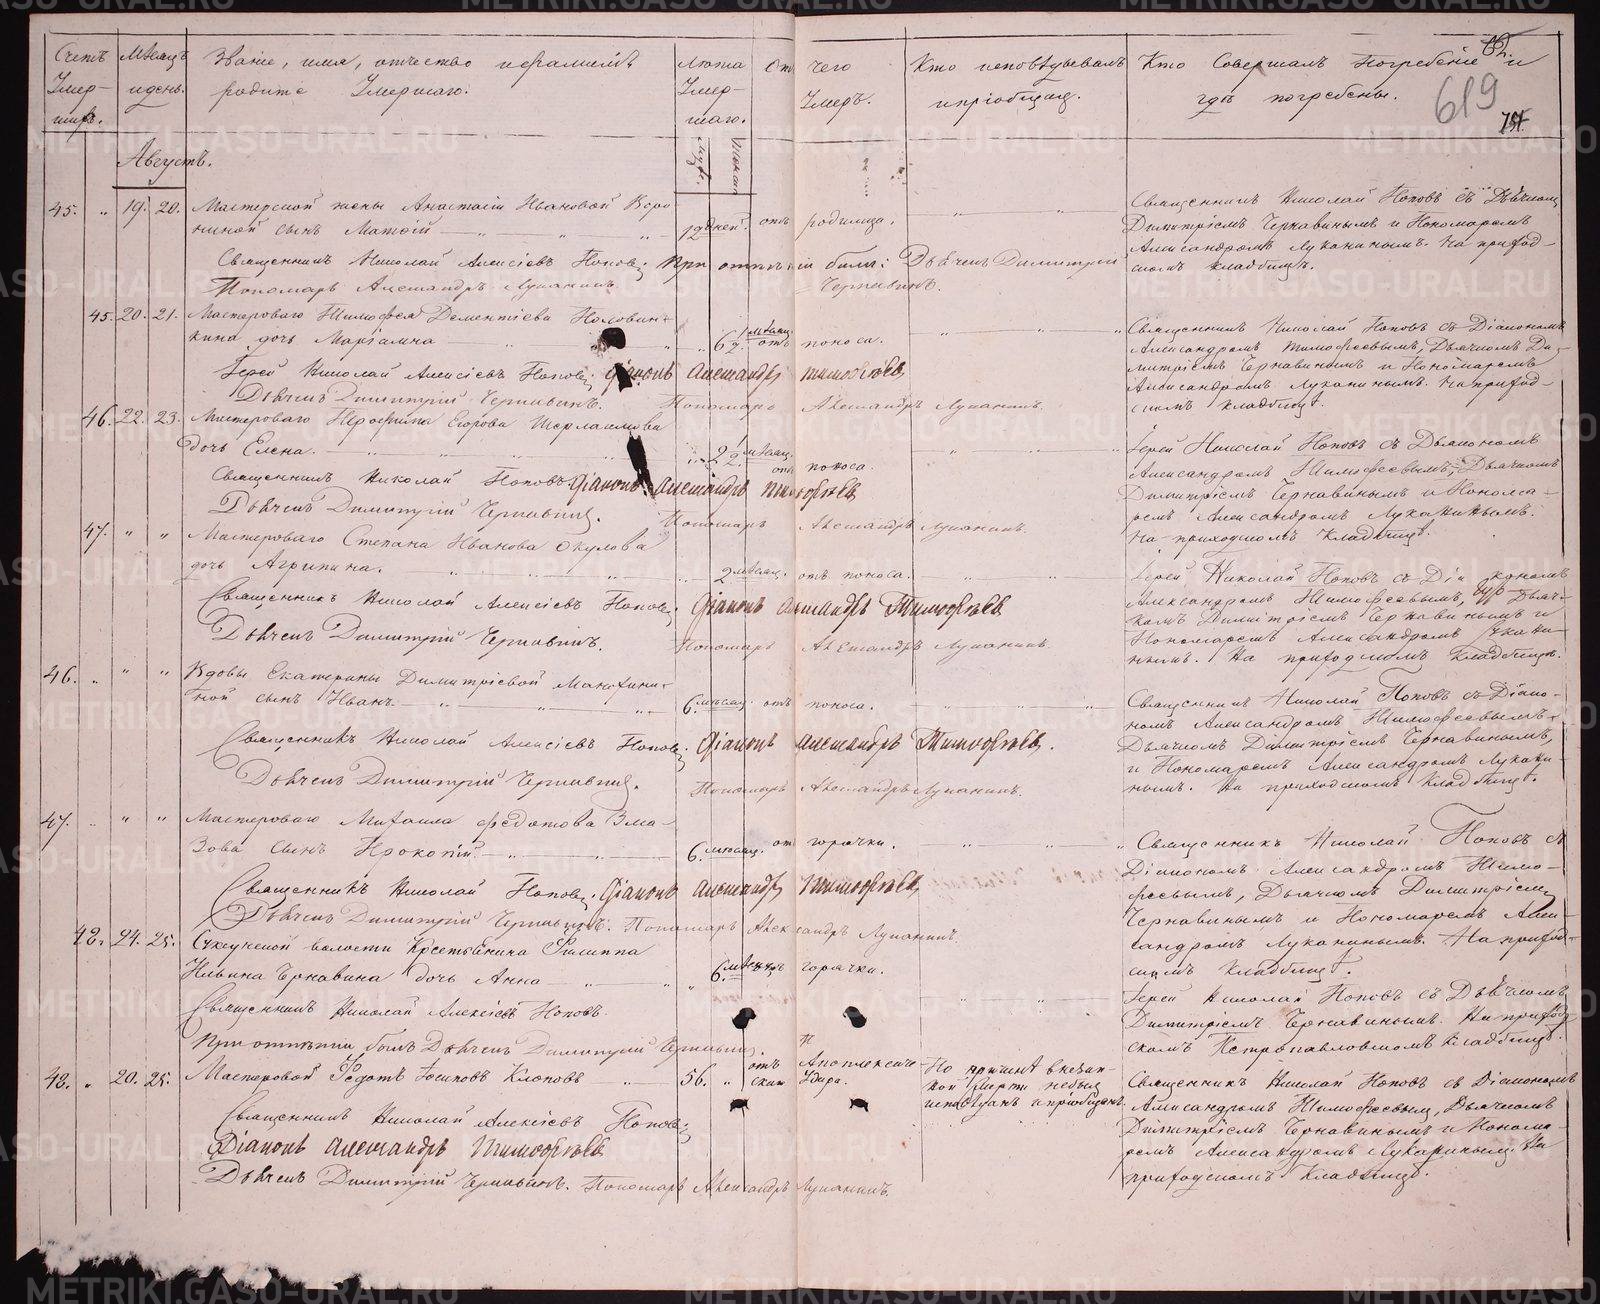 Счетъ Умер-шихъ.
Мѣсяцъ и день.
Званіе, имя, отчество и фамилія родит. Умершаго.
Лѣта Умер-шаго.
Отъ чего Умеръ.
Кто исповѣдывалъ и пріобщалъ.
Кто Совершалъ Погребеніе и гдѣ погребены.
619
Августъ.
45. " 19. 20. Мастерской жены Анастасіи Ивановой Воро
ниной сынъ Матѳій 12 дней. отъ родимца.
Священникъ Николай Поповъ съ Дьячкомъ
Димитріемъ Чернавинымъ и Пономаремъ
Александромъ Луканинымъ. На приход-
скомъ кладбищѣ.
Священникъ Николай Алексіевъ Поповъ; При отпѣтіи были: Дьячекъ Димитрій Чернавинъ.
Пономарь Александръ Луканинъ.
45. 20. 21. Мастероваго Тимофея Дементіева Половин-
кина дочь Маріамна 6 1/2 мѣсяц. отъ поноса.
Священникъ Николай Поповъ съ Діакономъ
Александромъ Тимофеевымъ, Дьячкомъ Ди-
митріемъ Чернавинымъ и Пономаремъ
Александромъ Луканинымъ. На приход-
скомъ кладбищѣ.
Іерей Николай Алексіевъ Поповъ; Діаконъ Александръ Тимофѣевъ
Дьячекъ Димитрій Чернавинъ. Пономарь Александръ Луканинъ.
46. 22. 23. Мастероваго Егорова
дочь Елена. 2 1/2 мѣсяц. отъ поноса.
Іерей Николай Поповъ съ Дьякономъ
Александромъ Тимофеевымъ, Дьячкомъ
Димитріемъ Чернавинымъ и Понома-
ремъ Александромъ Луканинымъ.
На приходскомъ кладбищѣ.
Священникъ Николай Поповъ Діаконъ Александръ Тимофѣевъ
Дьячекъ Димитрій Чернавинъ. Пономарь Александръ Луканинъ.
47. " " Мастероваго Степана Иванова Окулова
дочь Агрипина. 2 мѣсяц. отъ поноса.
Іерей Николай Поповъ съ Діакономъ
Александромъ Тимофеевымъ, Дьяч-
комъ Димитріемъ Чернавинымъ и
Пономаремъ Александромъ Лукани-
нымъ. На приходскомъ кладбищѣ.
Священникъ Николай Алексіевъ Поповъ; Діаконъ Александръ Тимофѣевъ
Дьячекъ Димитрій Чернавинъ. Пономарь Александръ Луканинъ.
46. " " Вдовы Екатерины Димитріевой
ной сынъ Иванъ. 6. мѣсяц. отъ поноса.
Священникъ Николай Поповъ съ Діако-
номъ Александромъ Тимофеевымъ,
Дьячкомъ Димитріемъ Чернавинымъ,
и Пономаремъ Александромъ Лукани-
нымъ. На приходскомъ кладбищѣ.
Священникъ Николай Алексіевъ Поповъ; Діаконъ Александръ Тимофѣевъ.
Дьячекъ Димитрій Чернавинъ. Пономарь Александръ Луканинъ.
47. " " Мастероваго Михаила Федотова
сынъ Прокопій. 6. мѣсяц. отъ горячки.
Священникъ Николай Поповъ съ
Діакономъ Александромъ Тимо-
феевымъ, Дьячкомъ Димитріемъ
Чернавинымъ и Пономаремъ Алек-
сандромъ Луканинымъ. На приход-
скомъ кладбищѣ.
Священникъ Николай Поповъ; Діаконъ Александръ Тимофѣевъ
Дьячекъ Димитрій Чернавинъ. Пономарь Александръ Луканинъ.
48. 24. 25. волости Крестьянина Филиппа
Ильина Чернавина дочь Анна 6. мѣсяц. горячки.
Іерей Николай Поповъ съ Дьячкомъ
Димитріемъ Чернавинымъ. На приход-
скомъ Петропавловскомъ кладбищѣ.
Священникъ Николай Алексіевъ Поповъ.
При отпѣтіи былъ Дьячекъ Димитрій Чернавинъ.
48. " 20. 25. Мастеровой Федотъ Осиповъ Клоповъ 56. " отъ Апоплексиче-скаго Удара.
По причинѣ внезап-
ной смерти небылъ
исповѣданъ и пріобщенъ.
Священникъ Николай Поповъ съ Діакономъ
Александромъ Тимофеевымъ, Дьячкомъ
Димитріемъ Чернавинымъ и Понома-
ремъ Александромъ Луканинымъ. На
приходскомъ Кладбищѣ.
Священникъ Николай Алексіевъ Поповъ;
Діаконъ Александръ Тимофѣевъ
Дьячекъ Димитрій Чернавинъ. Пономарь Александръ Луканинъ.
METRIKI.GASO-URAL.RU